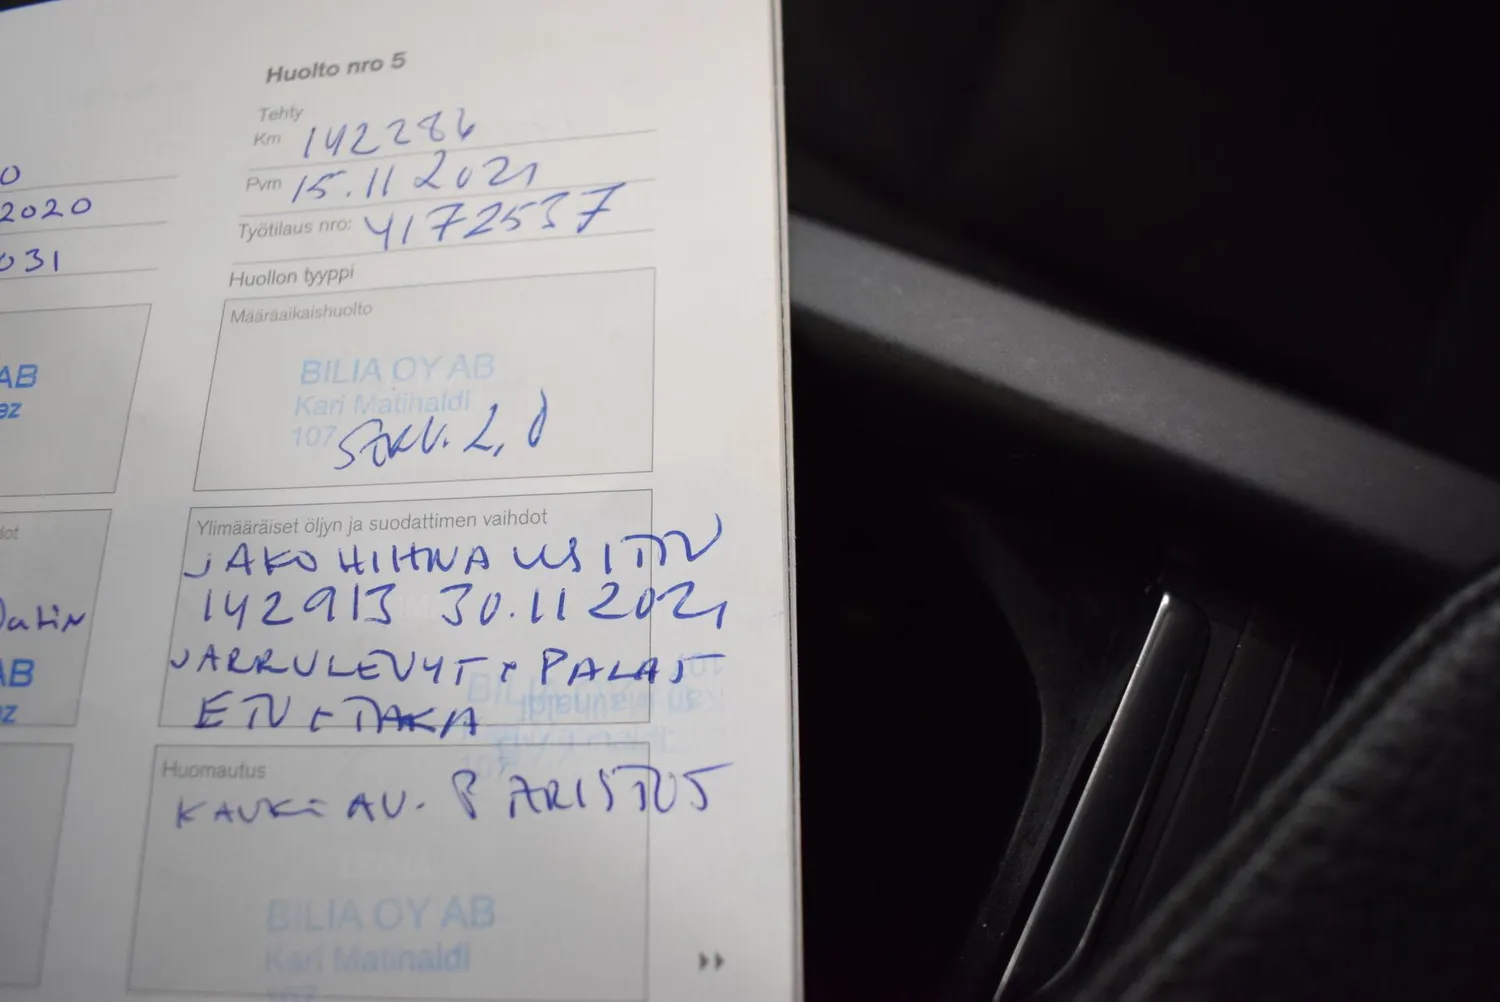 0
2020
031
AB
az
dot
AB
z
Huolto nro 5
Tehty
Km 142286
Pvm 15.11 2021
Työtilaus nro: 4172537
Huollon tyyppi
Määräaikaishuolto
BILIA OY AB
Kari Matinaldi
107
2,0
Ylimääräiset öljyn ja suodattimen vaihdot
JAKOHIHNA UUSITTU
142913 30.11 2021
JARRULEVYT + PALAT
ETU + TAKA
Huomautus
KAUKO AV. PARISTOT
BILIA OY AB
Kari Matinaldi
107